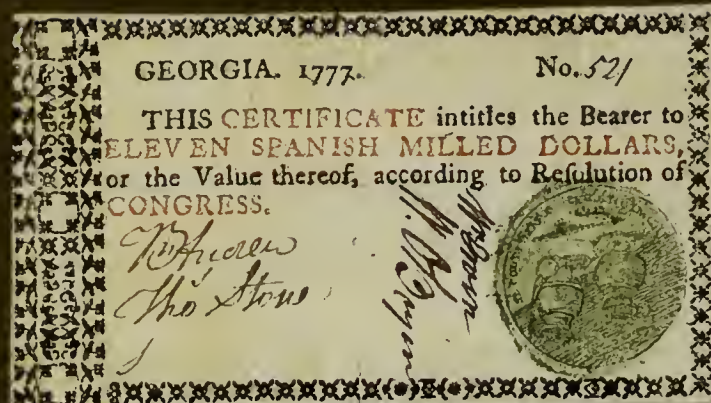 GEORGIA. 1777. No. 521
THIS CERTIFICATE intitles the Bearer to
ELEVEN SPANISH MILLED DOLLARS,
or the Value thereof, according to Reſolution of
CONGRESS.
Tho Stone